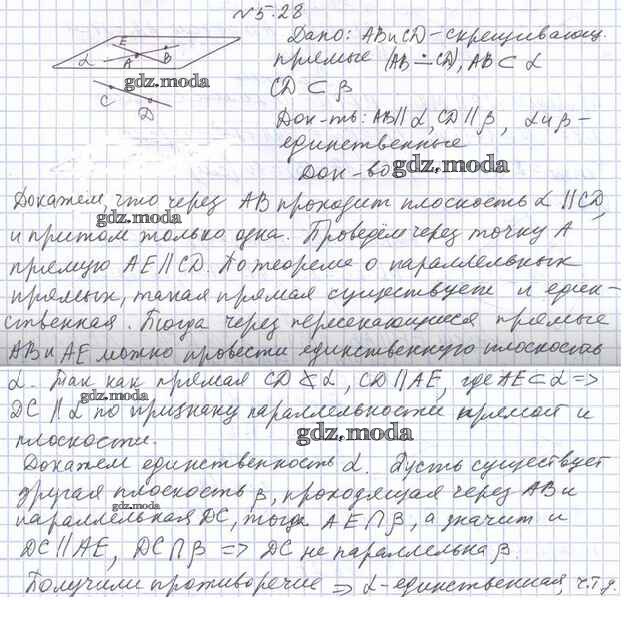 №5.28
Дано: AB и CD - скрещивающ.
прямые (AB ∸ CD), AB ⊂ α
CD ⊂ β
Док-ть: AB ∥ α, CD ∥ β, α и β -
единственные
Док-во
E
α
A
B
C
D
gdz.moda
gdz.moda
Докажем, что через AB проходит плоскость α ∥ CD,
gdz.moda
и притом только одна. Проведём через точку A
прямую AE ∥ CD. По теореме о параллельных
прямых, такая прямая существует и един-
ственная. Тогда через пересекающиеся прямые
AB и AE можно провести единственную плоскость
α. Так как прямая CD ⊄ α, CD ∥ AE, где AE ⊂ α =>
gdz.moda
DC ∥ α по признаку параллельности прямой и
плоскости.
gdz.moda
Докажем единственность α. Пусть существует
другая плоскость β, проходящая через AB и
gdz.moda
параллельная DC, тогда AE ∩ β, а значит и
DC ∥ AE, DC ∩ β => DC не параллельна β.
Получили противоречие => α - единственная, ч.т.д.